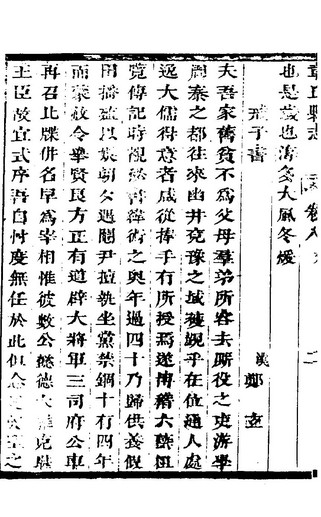 章丘縣志 卷八
也是歲也海多大風冬煖
戒子書
漢 鄭玄
夫吾家舊貧不爲父母羣弟所容去廝役之吏游學
周秦之都往來幽并兗豫之域獲覲乎在位通人處
逸大儒得意者咸從捧手有所授焉遂博稽六藝粗
覽傳記時覩秘書緯術之奧年過四十乃歸供養假
田播殖以娛朝夕遇閹尹擅埶坐黨禁錮十有四年
而蒙赦令舉賢良方正有道辟大將軍三司府公車
再召比牒併名早爲宰相惟彼數公懿德大雅克堪
王臣故宜式序吾自忖度無任於此但念述先聖之